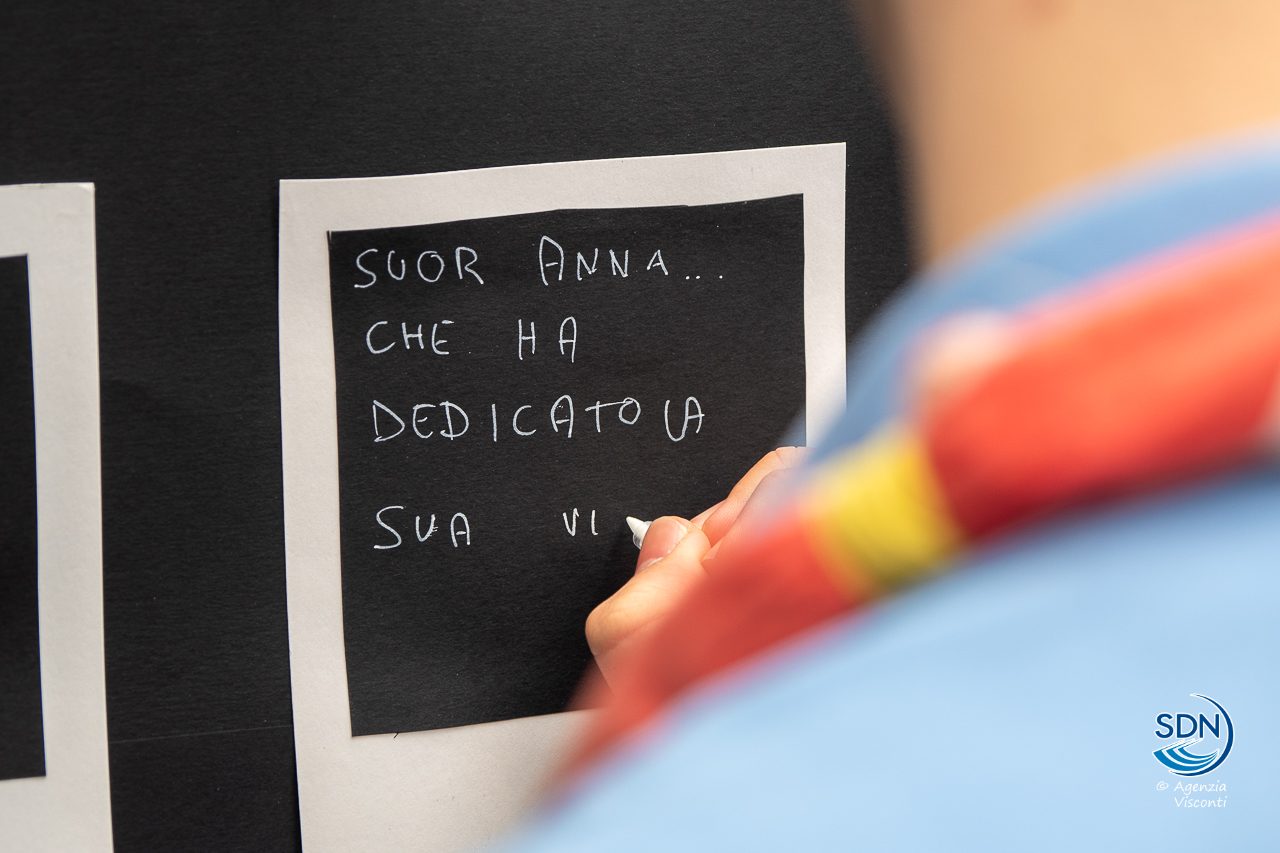 SUOR ANNA...
CHE HA
DEDICATO LA
SUA VI
SDN
© Agenzia
Visconti